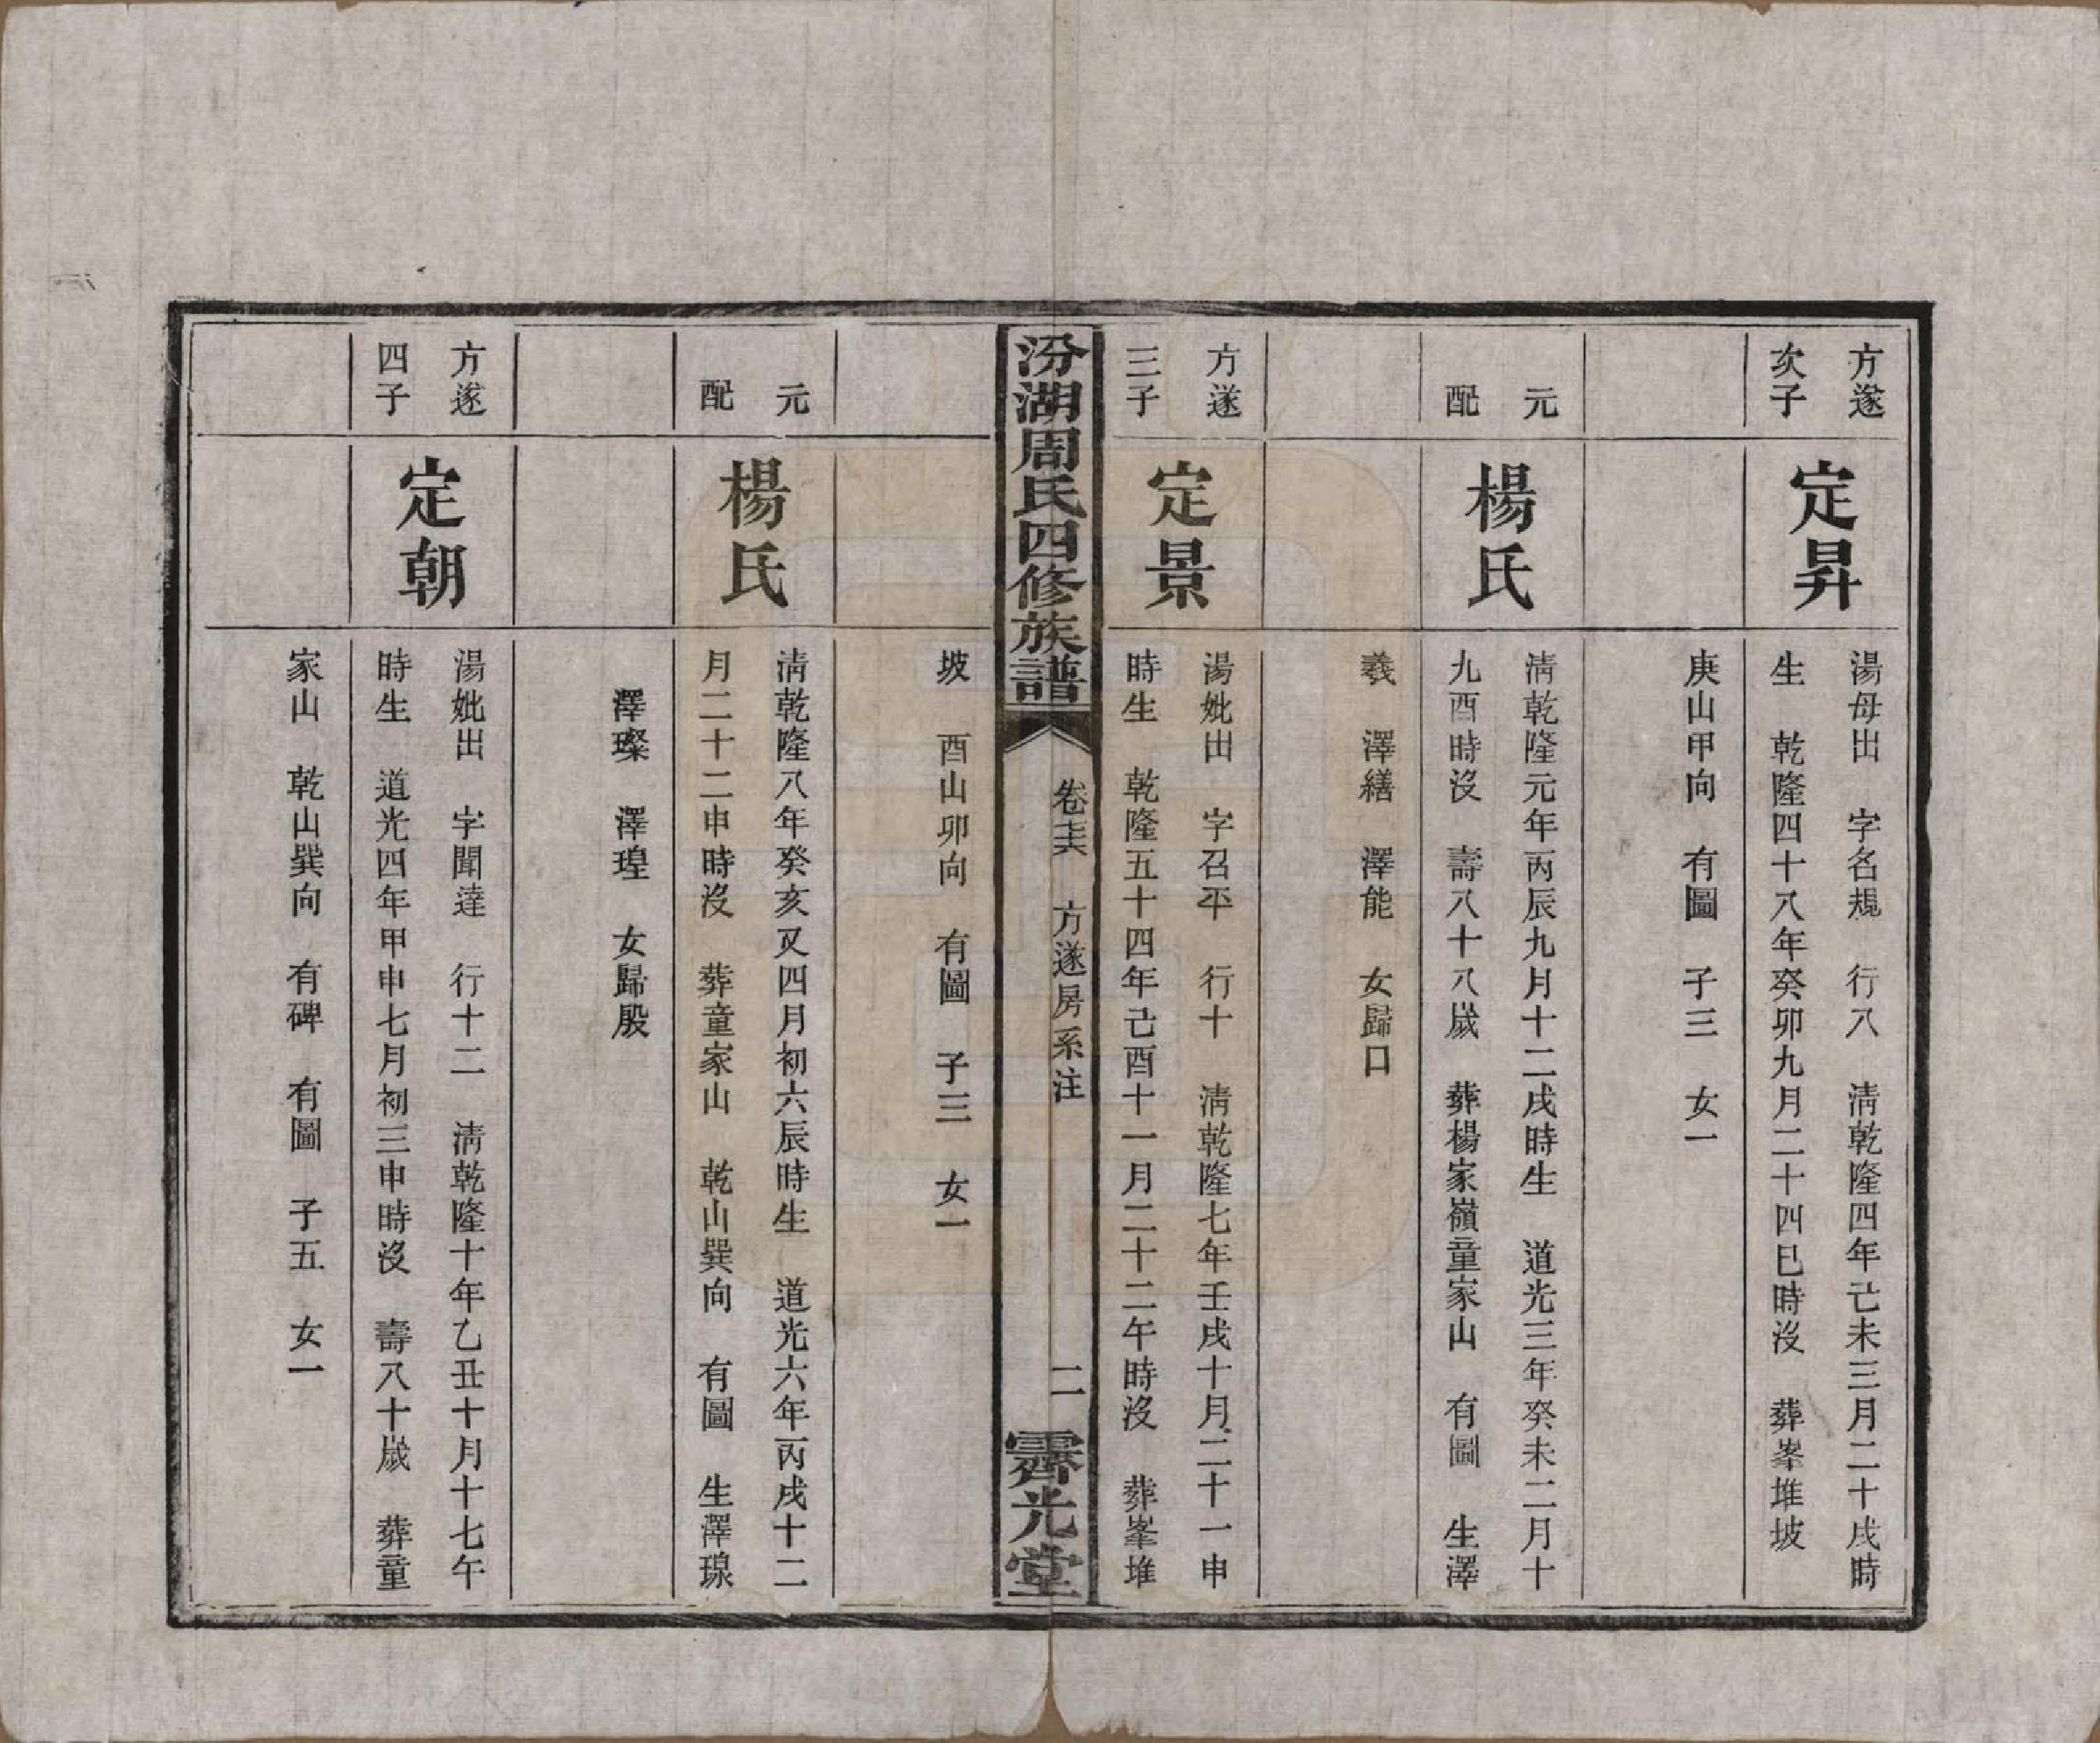 方遂
次子
定昇
湯母出　字名規　行八　清乾隆四年己未三月二十戌時
生　乾隆四十八年癸卯九月二十四巳時沒　葬峯堆坡
庚山甲向　有圖　子三　女一
元
配
楊氏
清乾隆元年丙辰九月十二戌時生　道光三年癸未二月十
九酉時沒　壽八十八歲　葬楊家嶺童家山　有圖　生澤
羲　澤繕　澤能　女歸口
方遂
三子
定景
湯妣出　字召平　行十　清乾隆七年壬戌十月二十一申
時生　乾隆五十四年己酉十一月二十二午時沒　葬峯堆
汾湖周氏四修族譜
卷六　方遂房系注
二
霽光堂
坡　酉山卯向　有圖　子三　女一
元
配
楊氏
清乾隆八年癸亥又四月初六辰時生　道光六年丙戌十二
月二十二申時沒　葬童家山　乾山巽向　有圖　生澤琅
澤璨　澤瑝　女歸殷
方遂
四子
定朝
湯妣出　字聞達　行十二　清乾隆十年乙丑十月十七午
時生　道光四年甲申七月初三申時沒　壽八十歲　葬童
家山　乾山巽向　有碑　有圖　子五　女一